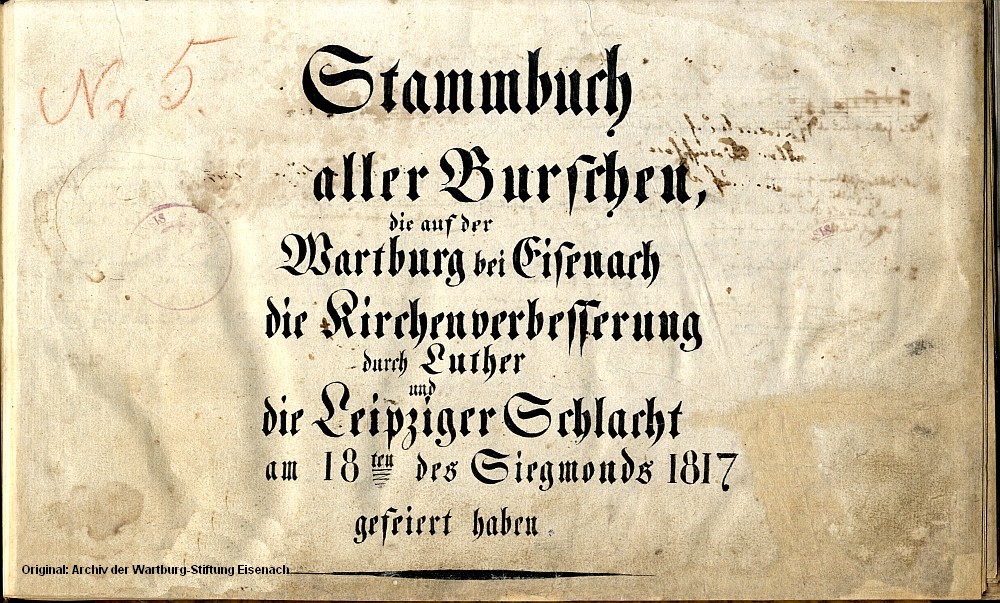 Nr 5.
Stammbuch
aller Burschen,
die auf der
Wartburg bei Eisenach
die Kirchenverbesserung
durch Luther
und
die Leipziger Schlacht
am 18ten des Siegmonds 1817
gefeiert haben.
Original: Archiv der Wartburg-Stiftung Eisenach